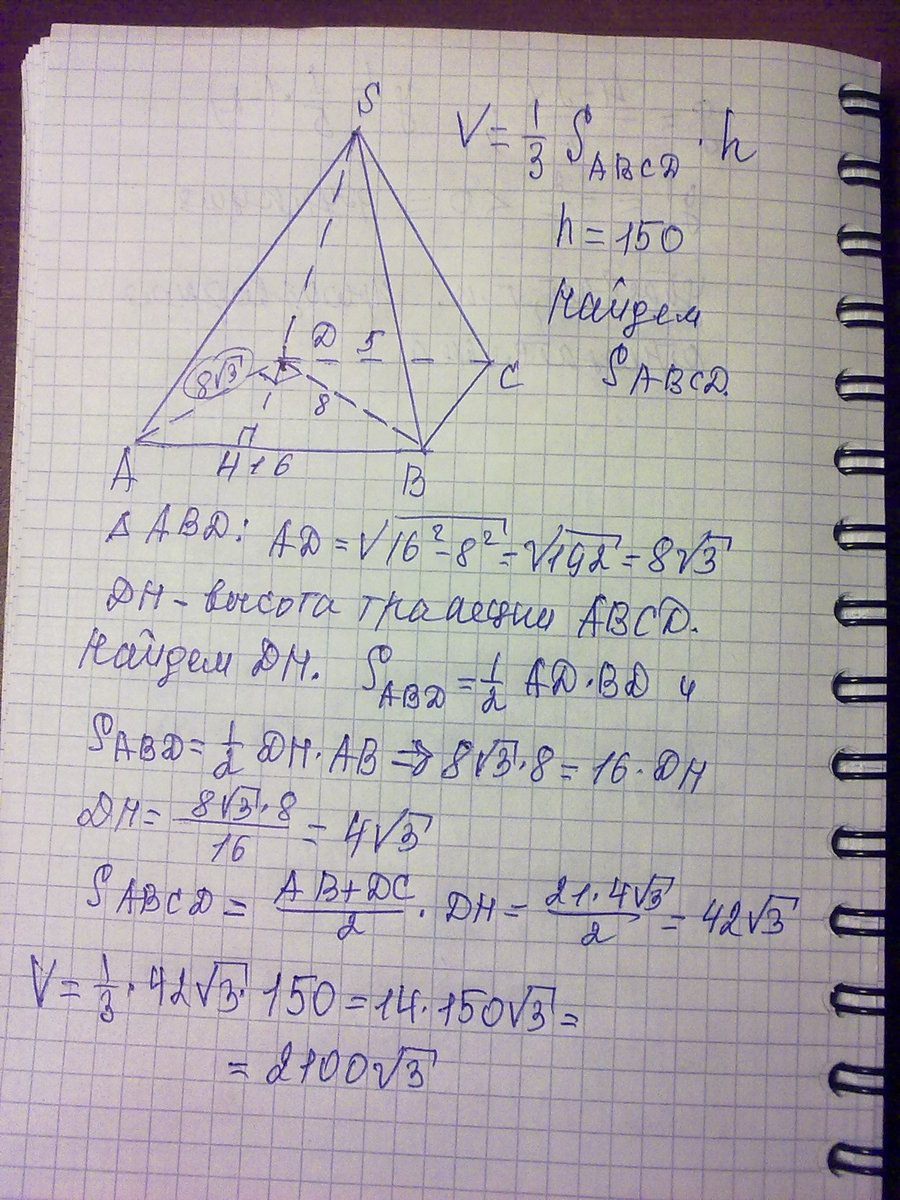 S
V = 1/3 S_ABCD · h
h = 150
Найдем
S_ABCD.
8√3
D 5
C
8
A
H 16
B
Δ ABD: AD = √16² - 8² = √192 = 8√3
DH - высота трапеции ABCD.
Найдем DH. S_ABD = 1/2 AD·BD и
S_ABD = 1/2 DH·AB ⇒ 8√3·8 = 16·DH
DH = 8√3·8/16 = 4√3
S_ABCD = AB+DC/2 · DH = 21·4√3/2 = 42√3
V = 1/3 · 42√3 · 150 = 14·150√3 =
= 2100√3